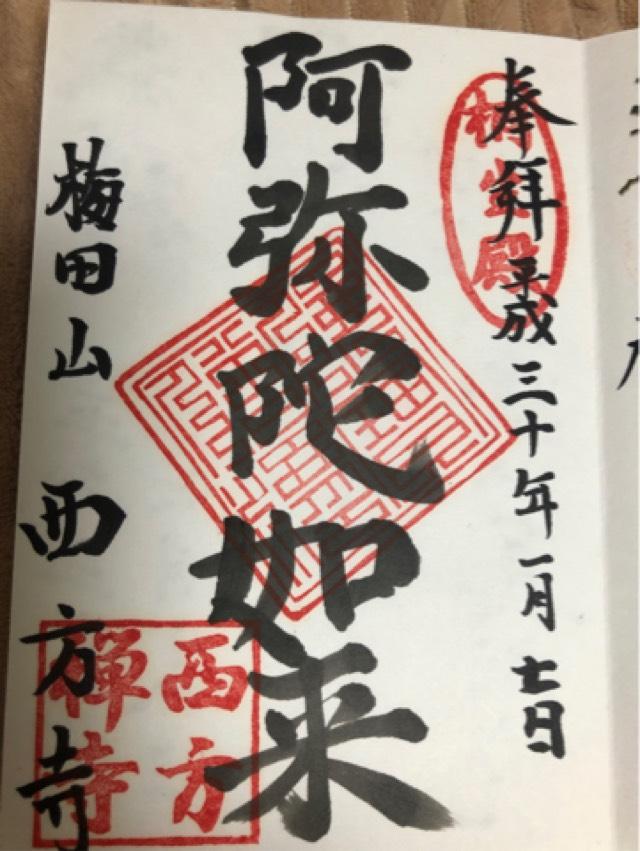 奉拝 平成三十年一月七日
阿弥陀如来
梅田山 西方寺
西方
禅寺